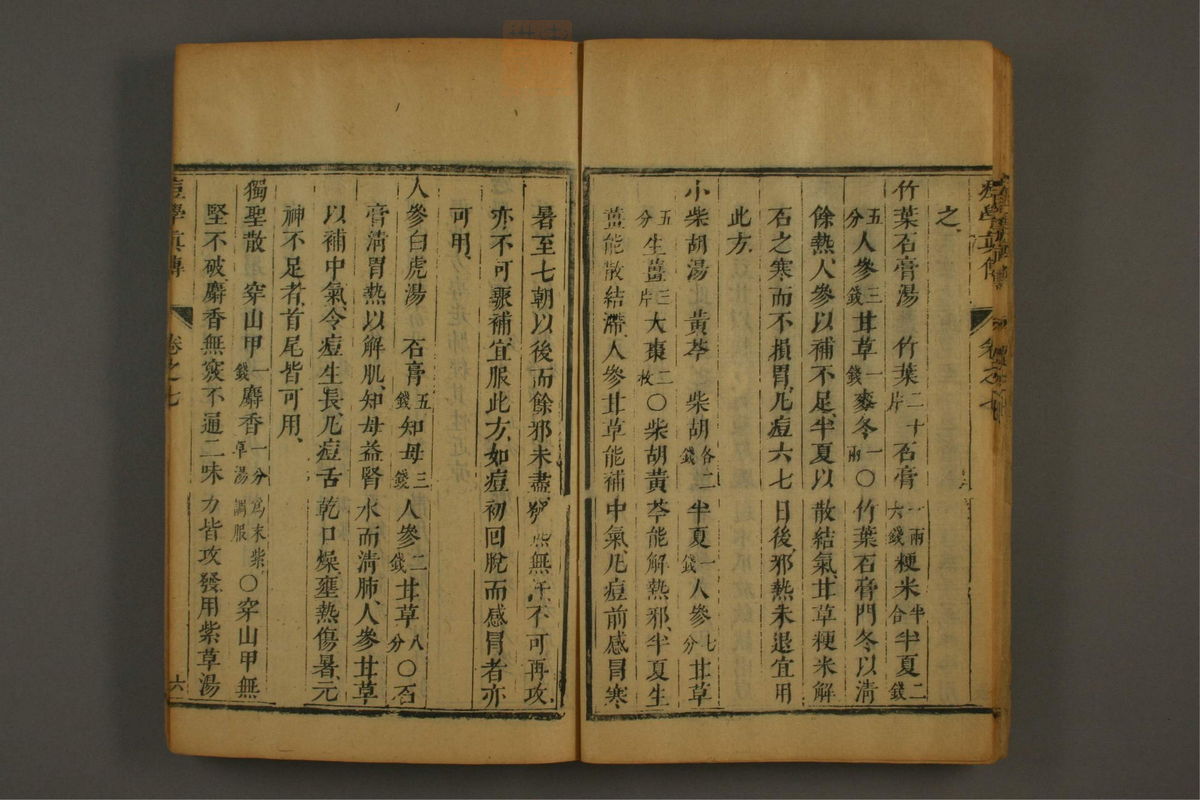 痘學真傳 卷之七
之
竹葉石膏湯 竹葉二十片石膏一兩六錢粳米半合半夏二錢
五分人參三錢甘草一錢麥冬一兩○竹葉石膏門冬以清
餘熱人參以補不足半夏以散結氣甘草粳米解
石之寒而不損胃凡痘六七日後邪熱未退宜用
此方
小柴胡湯 黃芩 柴胡各二錢半夏一錢人參七分甘草
五分生薑三片大棗二枚○柴胡黃芩能解熱邪半夏生
薑能散結滯人參甘草能補中氣凡痘前感冒寒
暑至七朝以後而餘邪未盡無汗不可再攻
亦不可驟補宜服此方如痘初回脫而感冒者亦
可用
人參白虎湯 石膏五錢知母三錢人參二錢甘草八分○石
膏清胃熱以解肌知母益腎水而清肺人參甘草
以補中氣令痘生長凡痘舌乾口燥壅熱傷暑元
神不足者首尾皆可用
獨聖散 穿山甲一錢麝香一分為末紫草湯調服○穿山甲無
堅不破麝香無竅不通二味力皆攻發用紫草湯
痘學真傳 卷之七 六